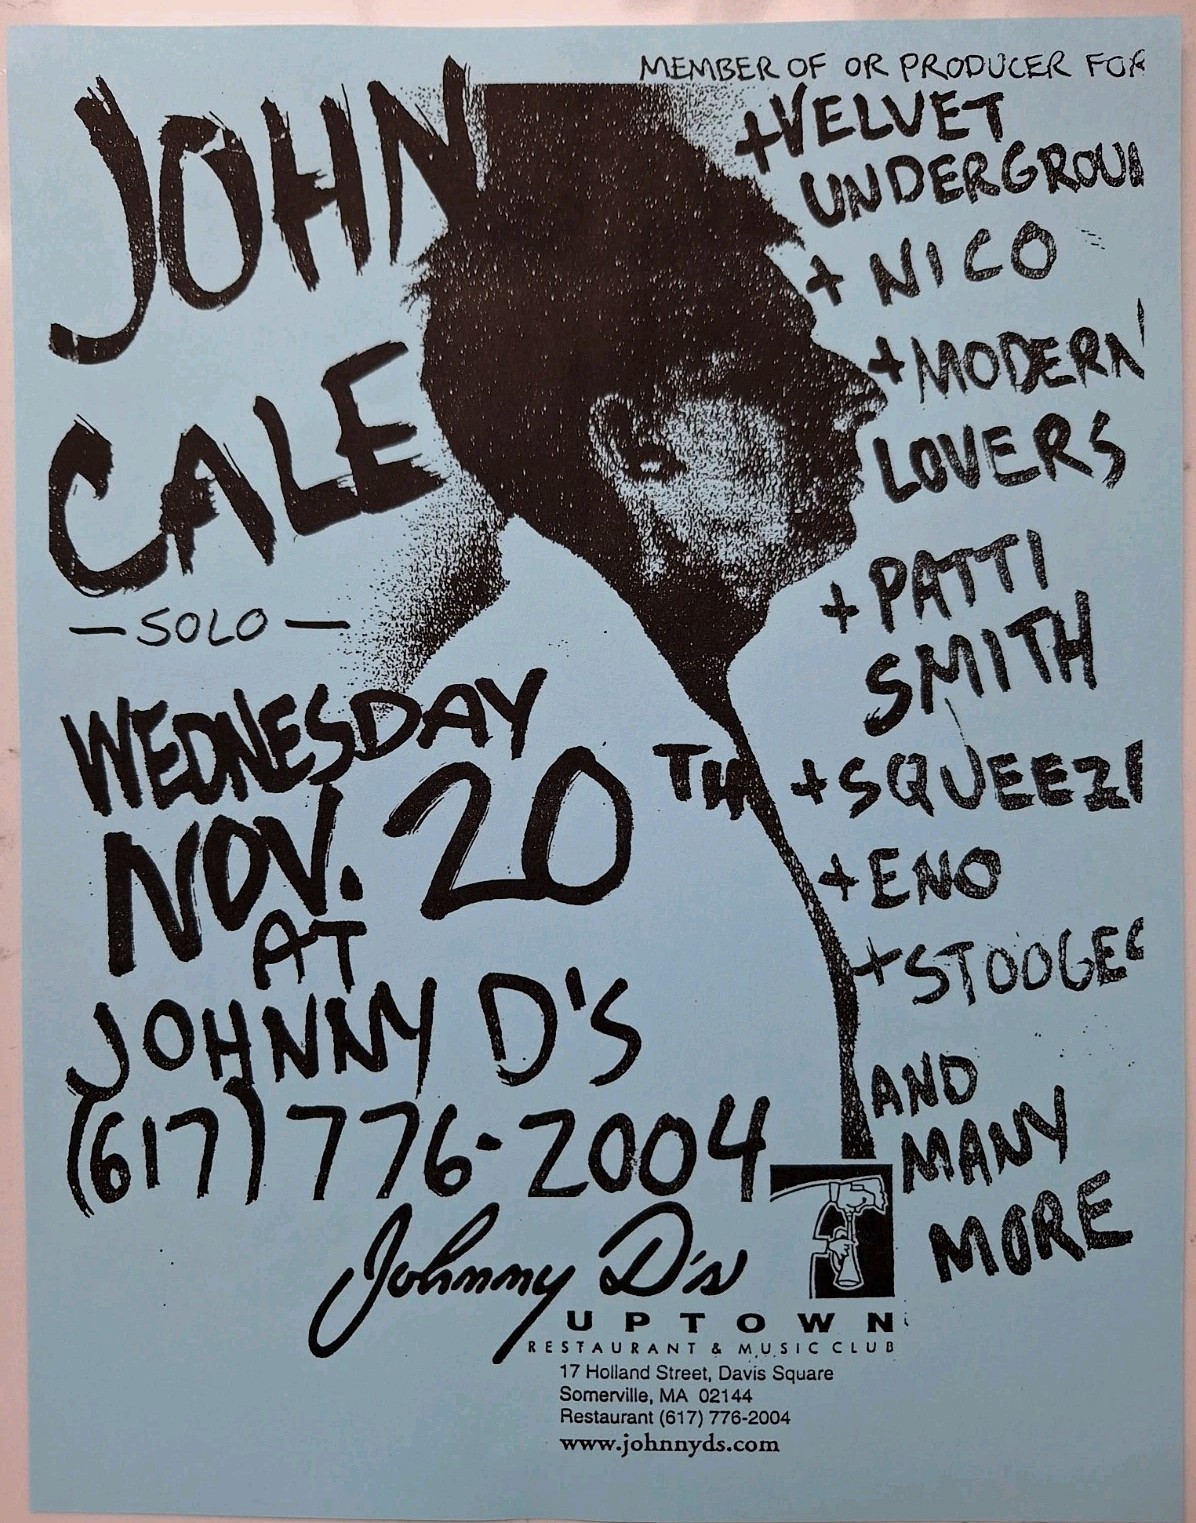 JOHN
CALE
— SOLO —
WEDNESDAY
NOV. 20TH
AT
JOHNNY D'S
(617) 776-2004
MEMBER OF OR PRODUCER FOR
+VELVET
UNDERGROUN
+ NICO
+ MODERN
LOVERS
+ PATTI
SMITH
+ SQUEEZE
+ ENO
+ STOOGES
AND
MANY
MORE
Johnny D's
UPTOWN
RESTAURANT & MUSIC CLUB
17 Holland Street, Davis Square
Somerville, MA 02144
Restaurant (617) 776-2004
www.johnnyds.com